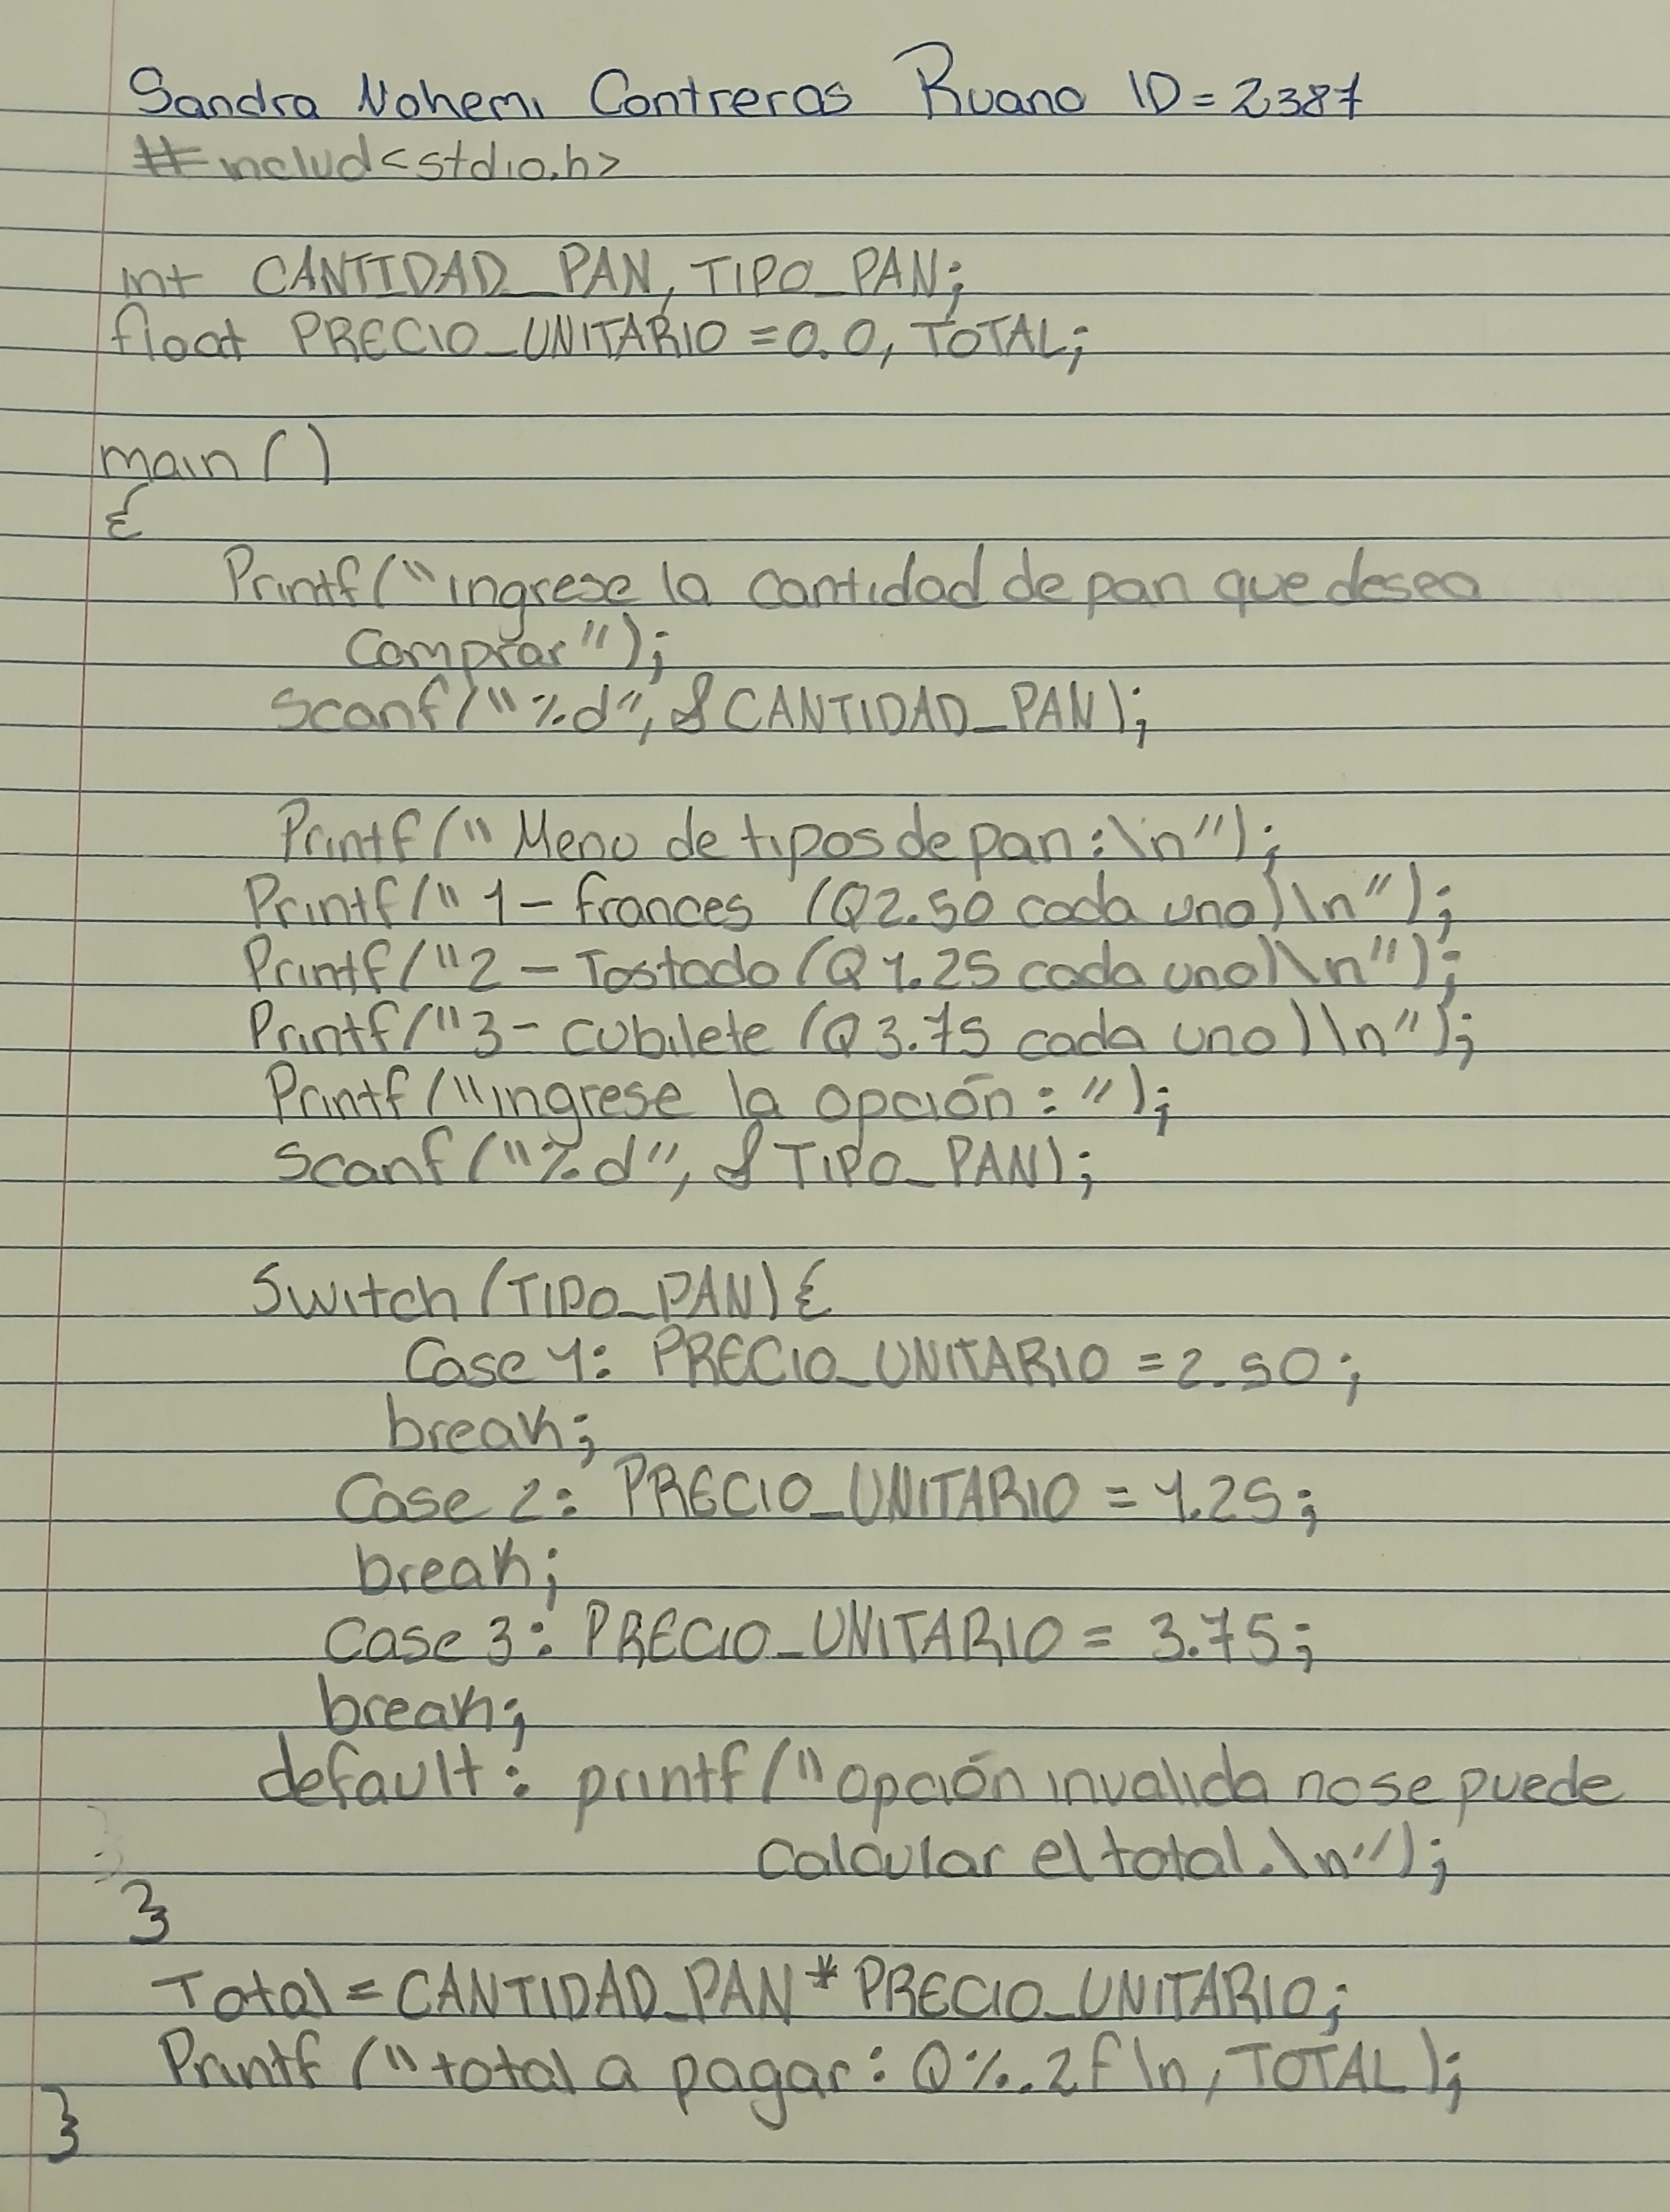 Sandra Nohemi Contreras Ruano ID=2387
#includ<stdio.h>
int CANTIDAD_PAN, TIPO_PAN;
float PRECIO_UNITARIO =0.0, TOTAL;
main ()
{
Printf("ingrese la cantidad de pan que desea
comprar");
Scanf("%d", &CANTIDAD_PAN);
Printf("Menu de tipos de pan:\n");
Printf("1- frances (Q2.50 cada uno)\n");
Printf("2 - Tostado (Q1.25 cada uno)\n");
Printf("3- cubilete (Q3.75 cada uno)\n");
Printf("ingrese la opción: ");
Scanf("%d", &TIPO_PAN);
Switch (TIPO_PAN){
Case 1: PRECIO_UNITARIO =2.50;
break;
Case 2: PRECIO_UNITARIO = 1.25;
break;
Case 3: PRECIO_UNITARIO = 3.75;
break;
default: printf("opción invalida no se puede
calcular el total.\n");
}
Total = CANTIDAD_PAN * PRECIO_UNITARIO;
Printf ("total a pagar: Q%.2f\n, TOTAL);
}